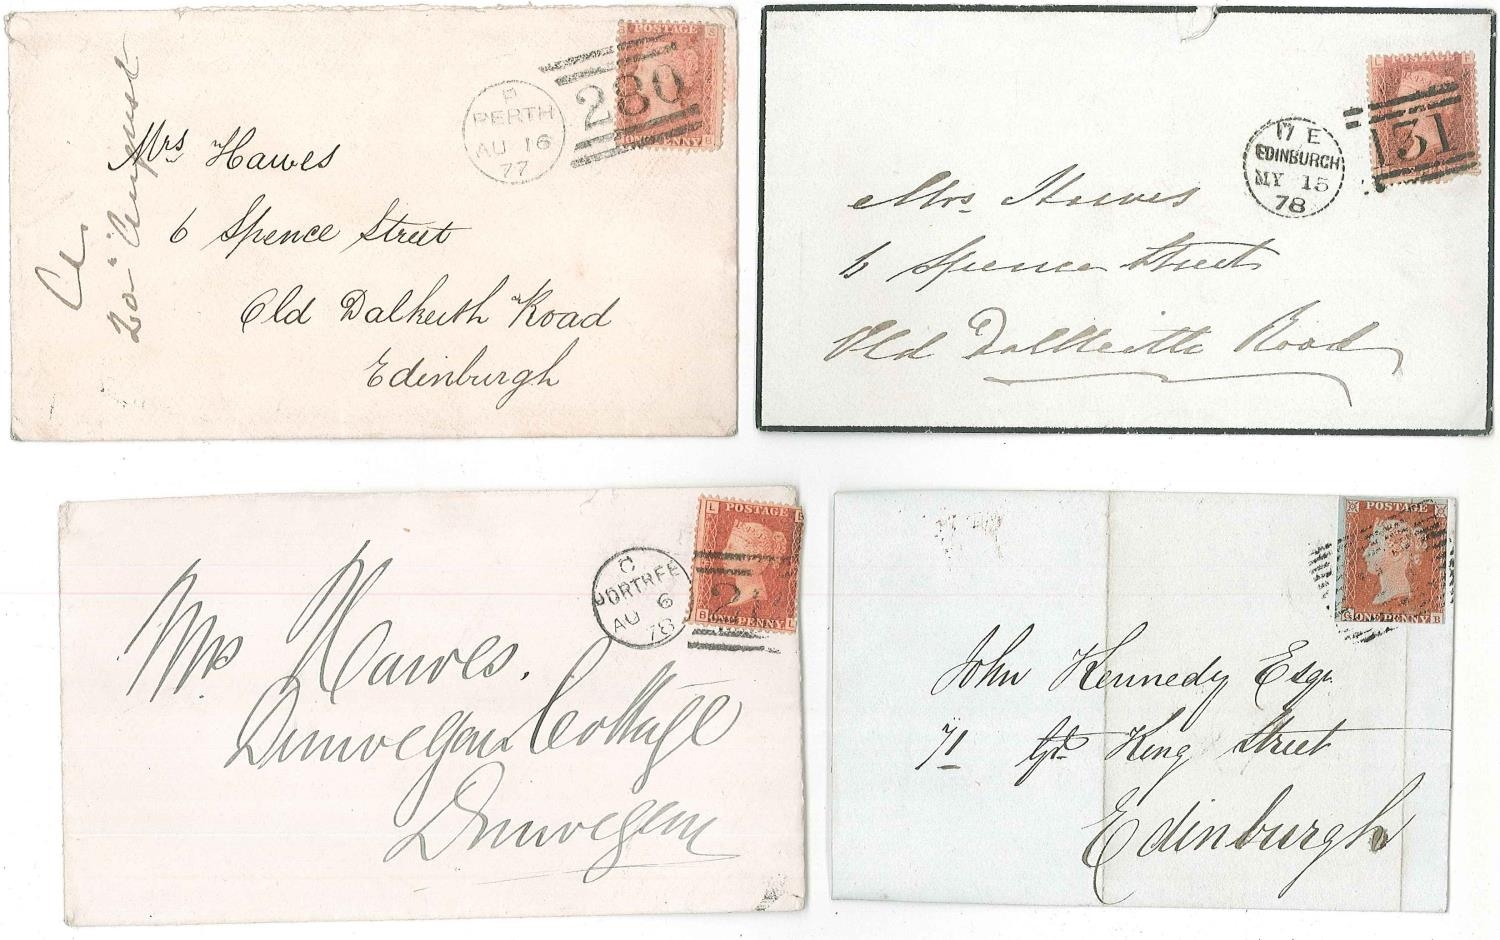 POSTAGE
280
ONE PENNY
P
PERTH
AU 16
77
Mrs Hawes
6 Spence Street
Old Dalkeith Road
Edinburgh
20 August
POSTAGE
131
17 E
EDINBURGH
MY 15
78
Mrs. Hawes
6 Spence Street
Old Dalkeith Road
L
POSTAGE
B ONE PENNY L
C
PORTREE
AU 6
78
Mrs Hawes.
Dunvegan Cottage
Dunvegan
POSTAGE
G ONE PENNY B
John Kennedy Esqr
71 Gt. King Street
Edinburgh